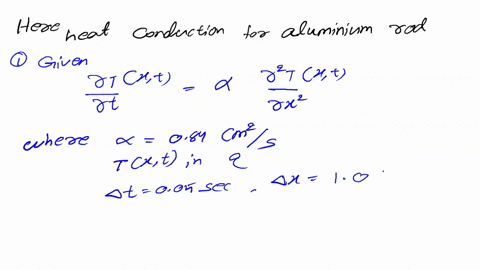 Here heat conduction for aluminium rod
① Given
∂T(x,t)/∂t = α ∂²T(x,t)/∂x²
where α = 0.84 cm²/s
T(x,t) in
Δt = 0.05 sec, Δx = 1.0